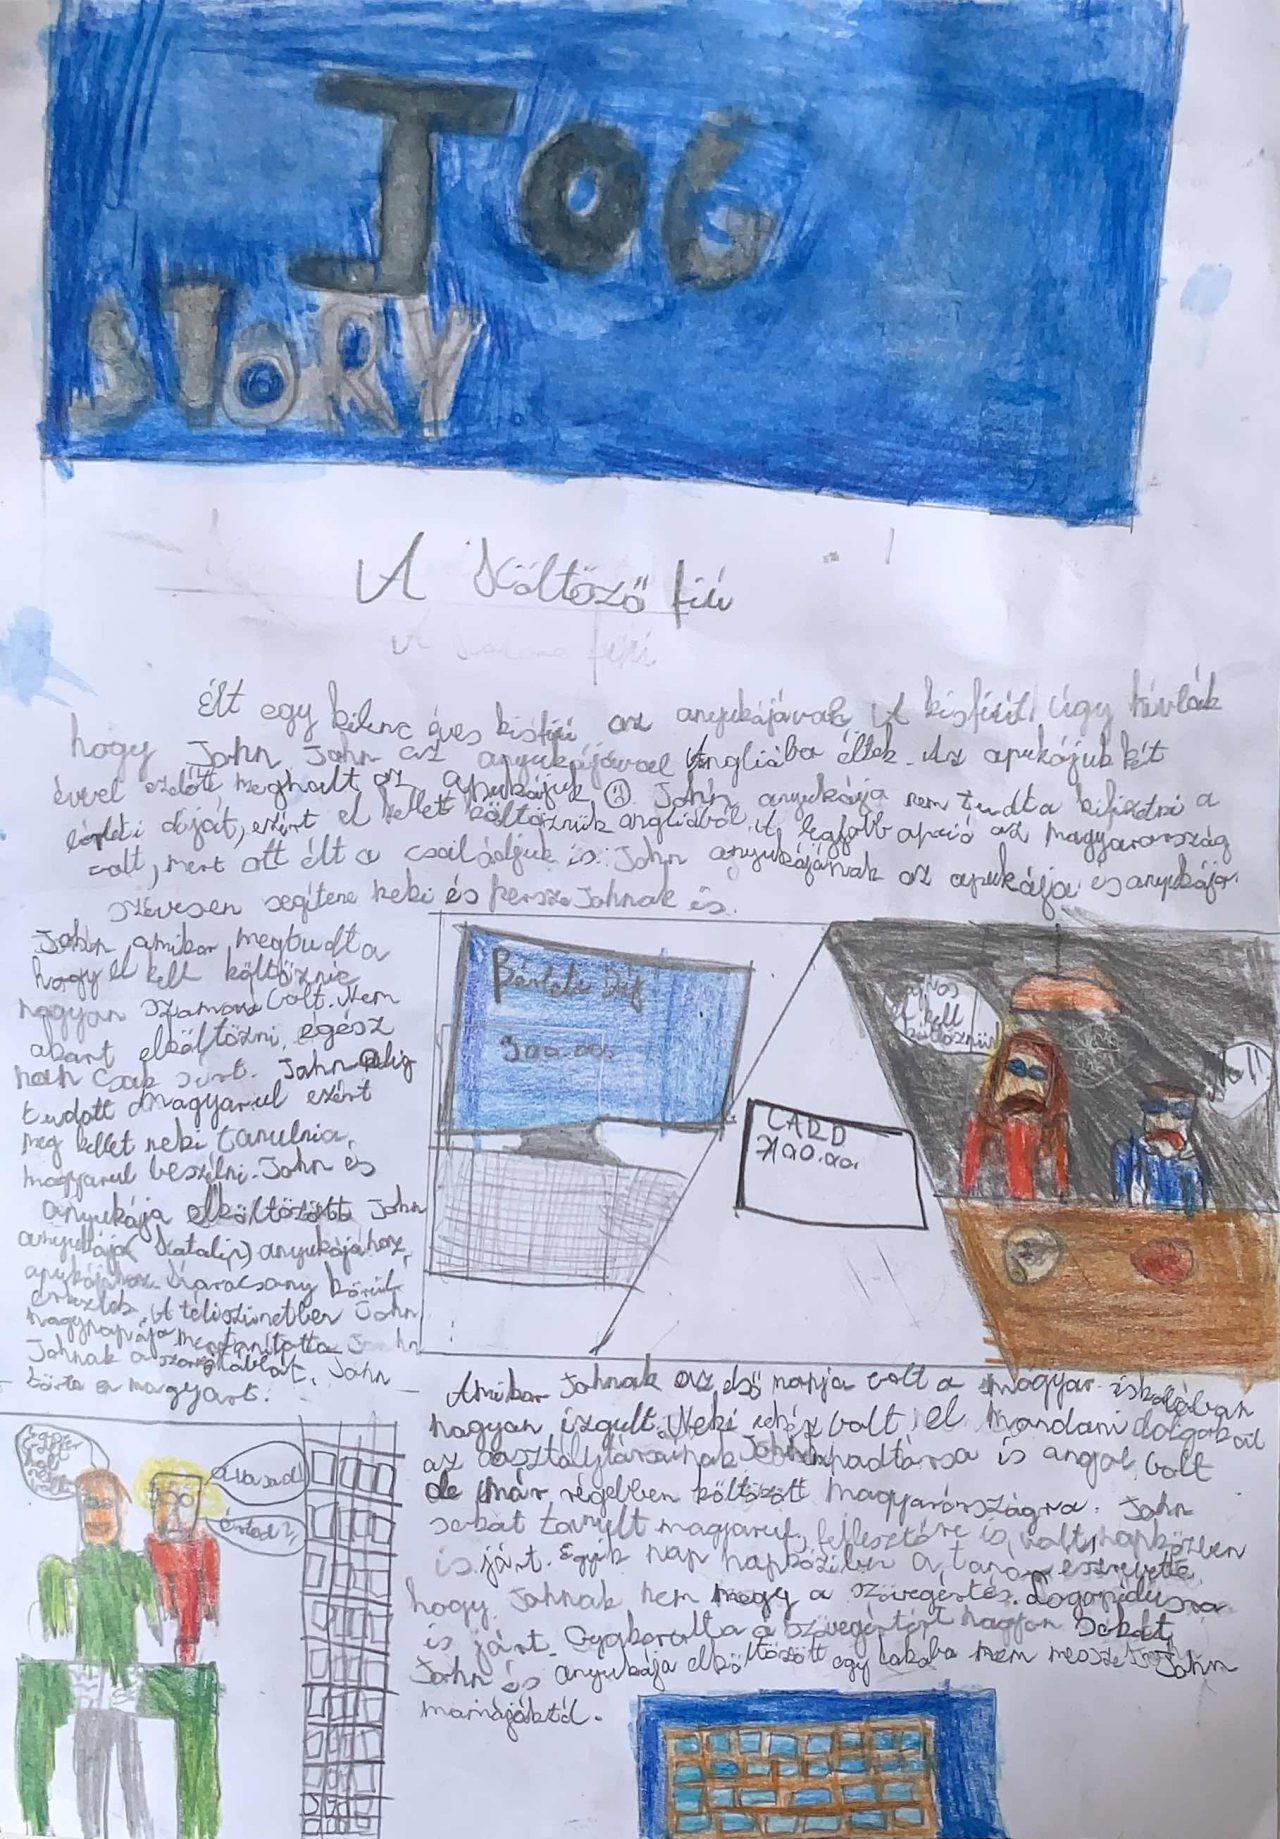 JOG
STORY
A Költöző fiú
Élt egy kilenc éves kisfiú az anyukájával. A kisfiút úgy hívták
hogy John. John az anyukájával Angliába éltek. Az apukájuk két
évvel ezelőtt meghalt az apukájuk ☹. John anyukája nem tudta kifizetni a
díját, ezért el kellett költözniük angliából. A legjobb opció az magyarország
volt, mert ott élt a családjuk is. John anyukájának az apukája és anyukája
szívesen segítene neki és persze Johnak is.
John amikor megtudta
hogy el kell költöznie
nagyon szomorú volt. Nem
akart elköltözni, egész
nap csak sírt. John alig
tudott magyarul ezért
meg kellet neki tanulnia,
magyarul beszélni. John és
anyukája elköltözött John
anyukája (Katalin) anyukájához,
apukájához. Karácsony körül
érkeztek. A téli szünetben John
nagypapája megtanította John
Johnak a szorzótáblát, John
törte a magyart.
Bérleti díj
300.00.
CARD
700.00.
Sajnos
el kell
költöznünk
Ne!!
Amikor Johnak az első napja volt a magyar iskolában
nagyon izgult. Neki nehéz volt el mondani dolgokat
az osztálytársainak. John padtársa is angol volt
de már régebben költözött magyarországra. John
sokat tanult magyarul, fejlesztőre is, napköziben
is járt. Egyik nap napköziben a tanár észrevette,
hogy Johnak nem megy a szövegértés. Logopédusra
is járt. Gyakorolta a szövegértést nagyon sokat,
John és anyukája elköltözött egy lakába nem messze John
mamájáktól.